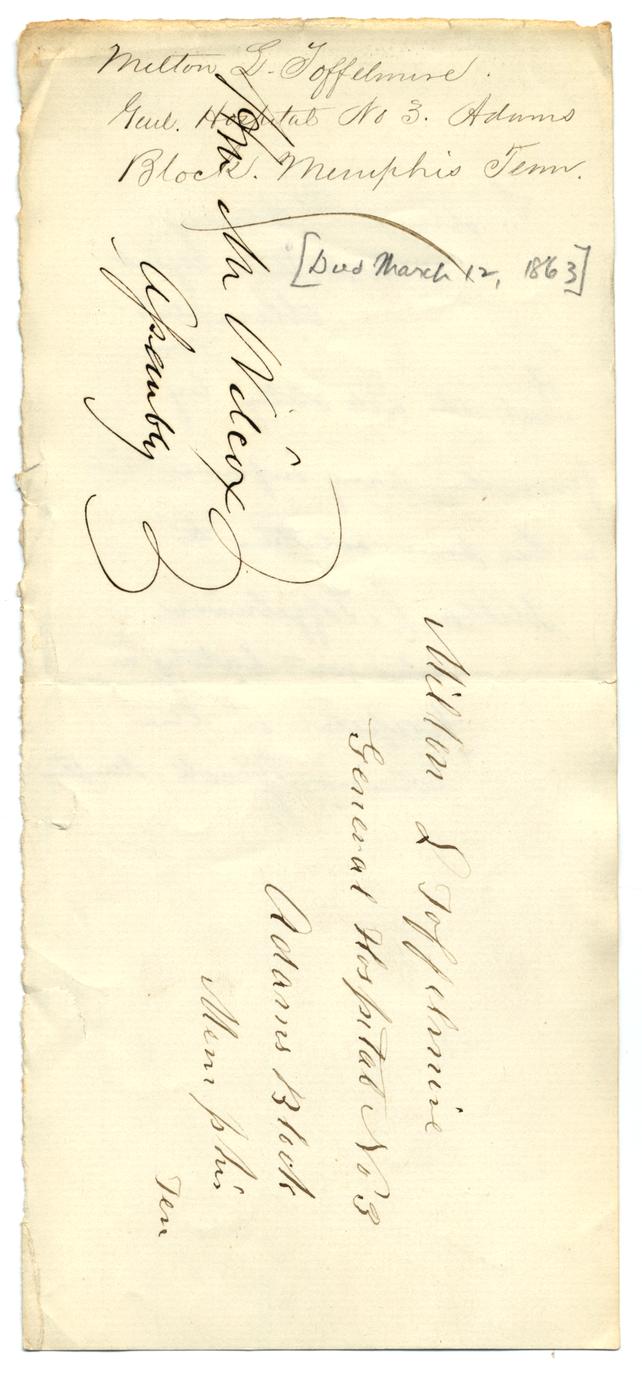 Milton L. Toffelmire.
Genl. Hospital No 3. Adams
Block. Memphis Tenn.
[Died March 12, 1863]
Mr Wilcox
Assembly
Milton L Toffelmire
General Hospital No 3
Adams Block
Memphis
Ten